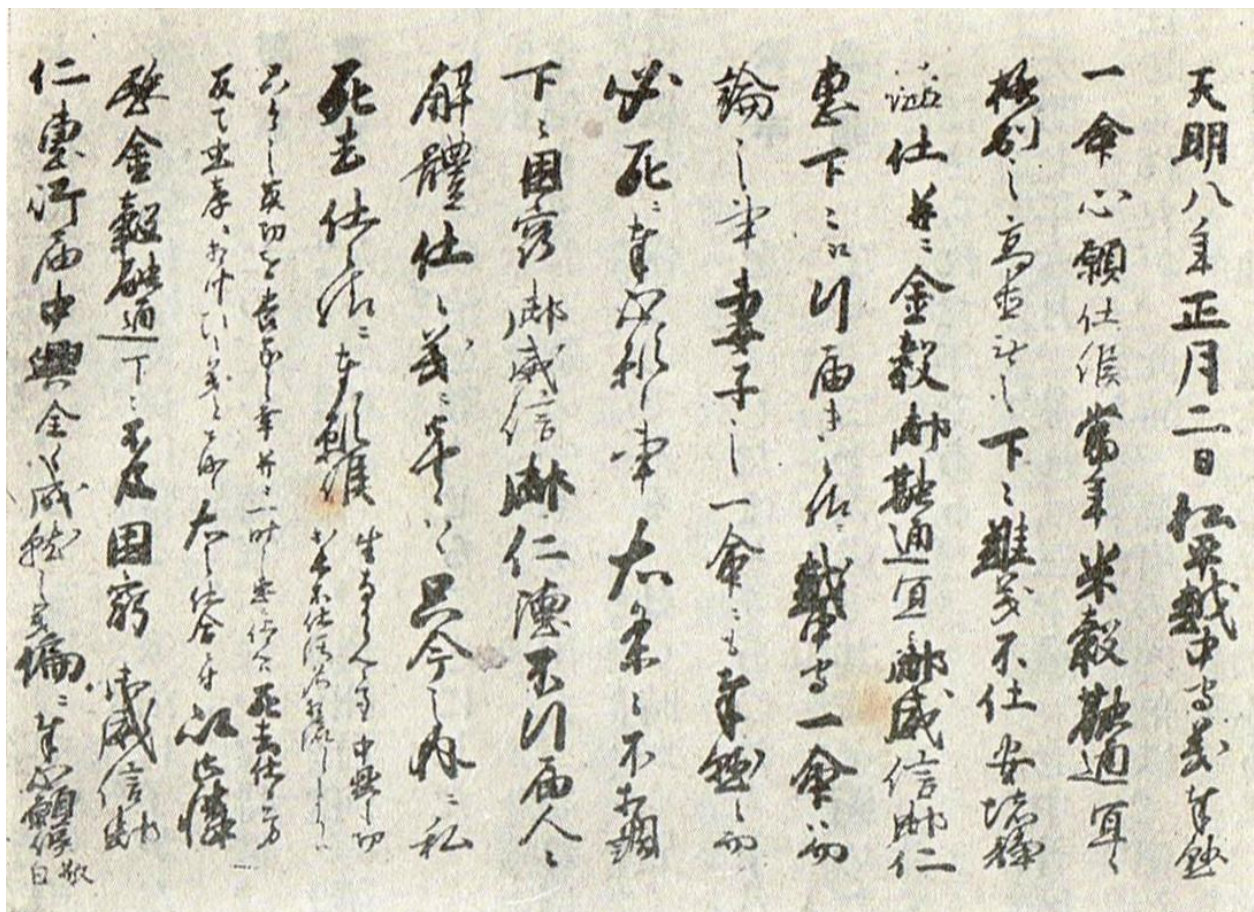 天明八年正月二日松平越中守義奉懸
一命心願仕候当年米穀融通宜く
格別之高直無之下々難義不仕安堵静
謐仕并ニ金穀御融通宜御威信御仁
恵下々江行届き候様ニ越中守一命は勿
論之事妻子之一命ニも奉懸候而
必死ニ奉心願候事右条々不相調
下々困窮御威信御仁徳不行届人々
解體仕候義ニ御座候はゞ只今之内ニ私
死去仕候様ニ奉願候 生ながらへ候ても中興之功
出来不仕汚名相流し候より
只今之英功を養家之幸并ニ一時之忠ニ仕候へば死去仕候方
反て忠孝ニ相叶ひ候義と奉存候 右之仕合ニ付以御憐
愍金穀融通下々不及困窮 御威信御
仁恵行届中興全く成就之義偏ニ奉心願候 敬白